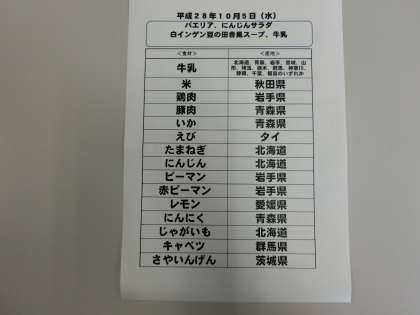 平成28年10月5日（水）
パエリア、にんじんサラダ
白インゲン豆の田舎風スープ、牛乳
＜食材＞ ＜産地＞
牛乳 北海道、青森、岩手、宮城、山形、埼玉、栃木、群馬、神奈川、静岡、千葉、福島のいずれか
米 秋田県
鶏肉 岩手県
豚肉 青森県
いか 青森県
えび タイ
たまねぎ 北海道
にんじん 北海道
ピーマン 岩手県
赤ピーマン 岩手県
レモン 愛媛県
にんにく 青森県
じゃがいも 北海道
キャベツ 群馬県
さやいんげん 茨城県